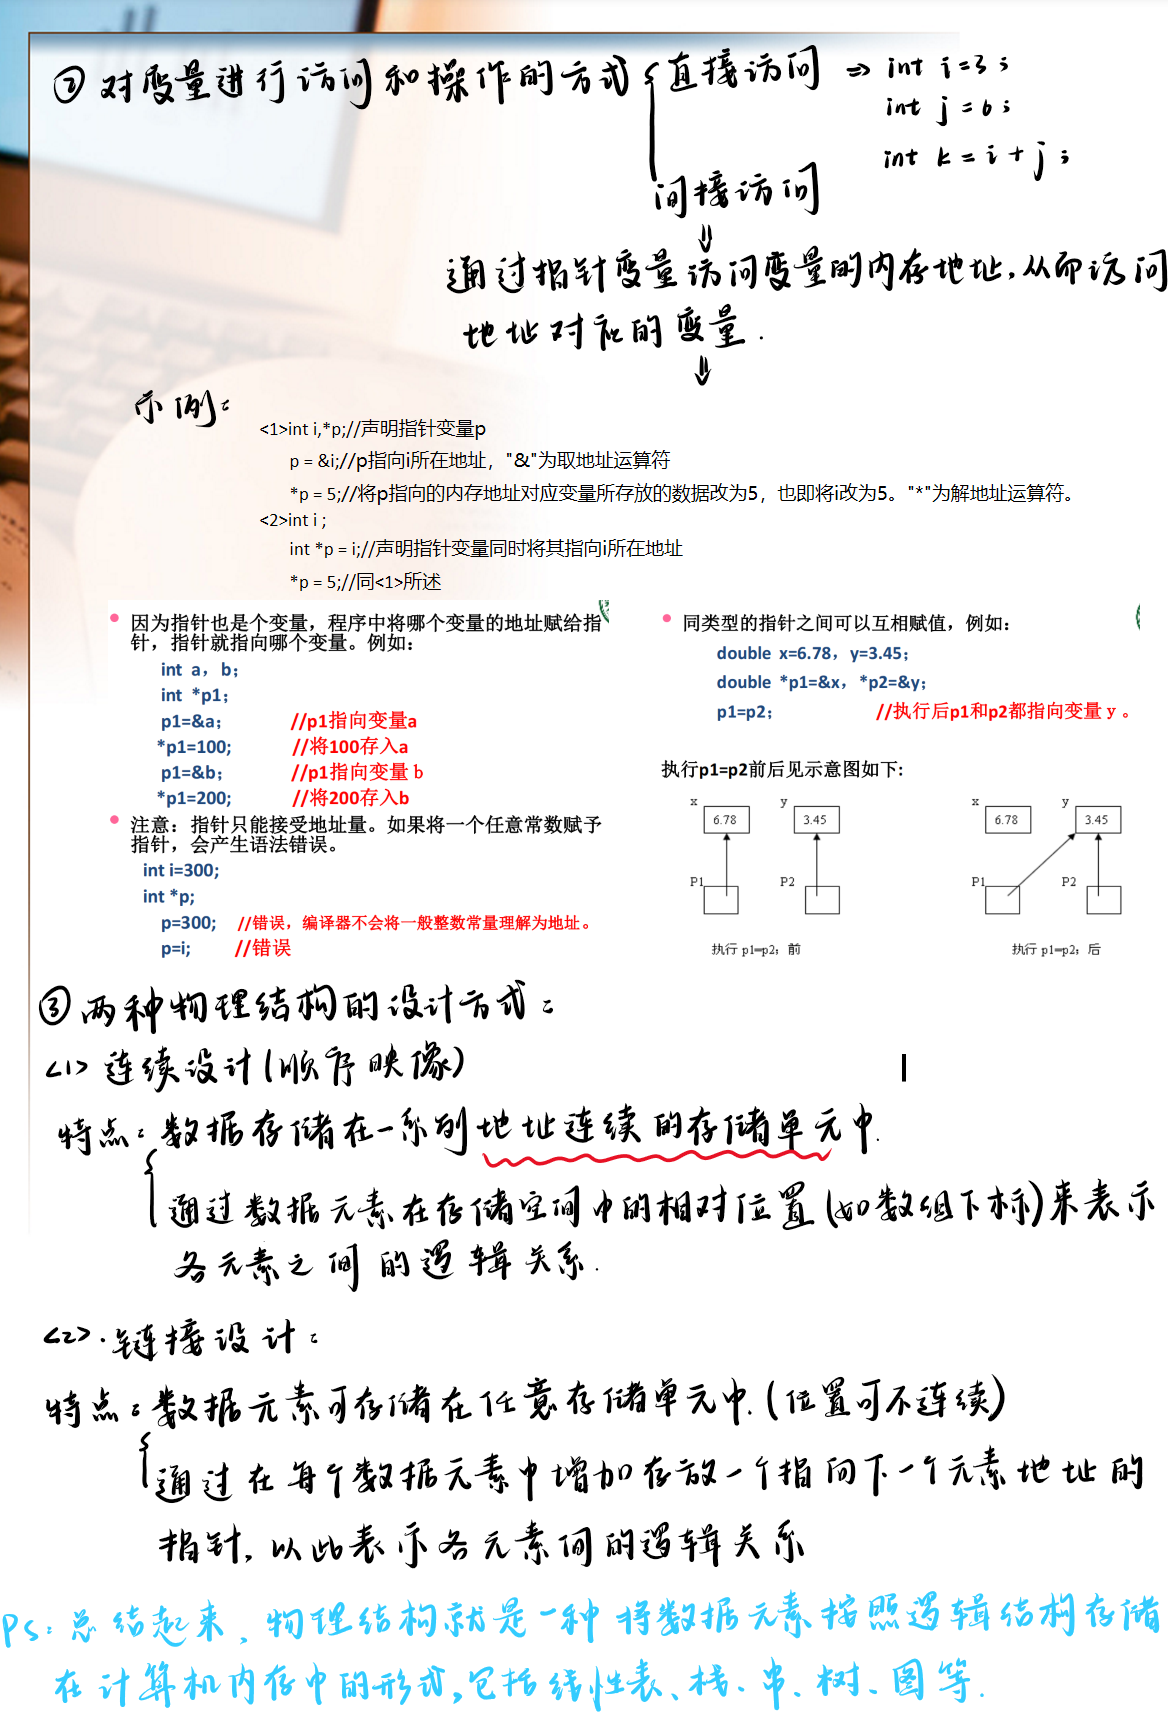 ② 对变量进行访问和操作的方式 { 直接访问 ⇒ int i=3;
int j=6;
int k=i+j;
间接访问
⇓
通过指针变量访问变量的内存地址,从而访问
地址对应的变量.
⇓
示例:
<1>int i,*p;//声明指针变量p
p = &i;//p指向i所在地址，"&"为取地址运算符
*p = 5;//将p指向的内存地址对应变量所存放的数据改为5，也即将i改为5。"*"为解地址运算符。
<2>int i ;
int *p = i;//声明指针变量同时将其指向i所在地址
*p = 5;//同<1>所述
• 因为指针也是个变量，程序中将哪个变量的地址赋给指
针，指针就指向哪个变量。例如：
int a，b；
int *p1；
p1=&a； //p1指向变量a
*p1=100; //将100存入a
p1=&b； //p1指向变量 b
*p1=200; //将200存入b
• 注意：指针只能接受地址量。如果将一个任意常数赋予
指针，会产生语法错误。
int i=300;
int *p;
p=300; //错误，编译器不会将一般整数常量理解为地址。
p=i; //错误
• 同类型的指针之间可以互相赋值，例如：
double x=6.78，y=3.45；
double *p1=&x，*p2=&y；
p1=p2； //执行后p1和p2都指向变量 y 。
执行p1=p2前后见示意图如下:
x y
6.78 3.45
P1 P2
执行 p1=p2；前
x y
6.78 3.45
P1 P2
执行 p1=p2；后
③ 两种物理结构的设计方式:
<1> 连续设计(顺序映像)
特点: 数据存储在一系列地址连续的存储单元中.
通过数据元素在存储空间中的相对位置(如数组下标)来表示
各元素之间的逻辑关系.
<2>.链接设计:
特点: 数据元素可存储在任意存储单元中.(位置可不连续)
通过在每个数据元素中增加存放一个指向下一个元素地址的
指针,以此表示各元素间的逻辑关系
Ps: 总结起来,物理结构就是一种将数据元素按照逻辑结构存储
在计算机内存中的形式,包括线性表、栈、串、树、图等.